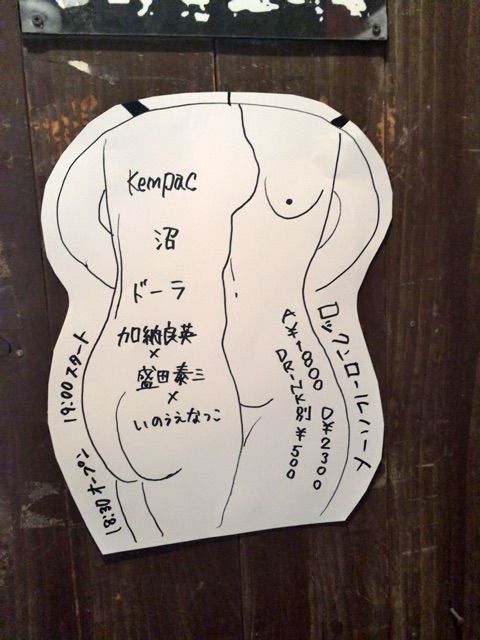 Kempac
沼
ドーラ
加納良英
×
盛田泰三
×
いのうえなつこ
18:30オープン
19:00スタート
ロックンロールハート
A¥1800 D¥2300
DRINK別¥500